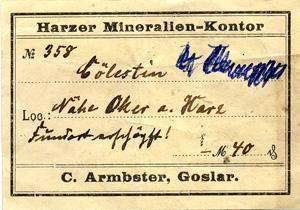 Harzer Mineralien-Kontor
№ 358
Cölestin
Loc.: Nähe Oker a. Harz
Fundort erschöpft!
M 40 ₰
C. Armbster, Goslar.